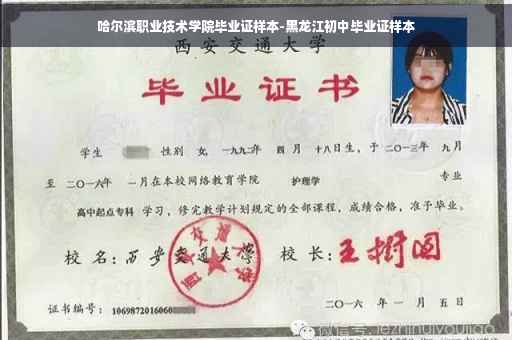 哈尔滨职业技术学院毕业证样本-黑龙江初中毕业证样本
西安交通大学
毕业证书
学生 性别 女,一九九二年 四月 十八日生,于二〇一三年 九月
至 二〇一六年 一月在本校网络教育学院 护理学 专业
高中起点专科 学习,修完教学计划规定的全部课程,成绩合格,准予毕业。
校名:西安交通大学 校长:王树国
西安交通大学
证书编号:1069872016060
二〇一六年一月五日
微信号: